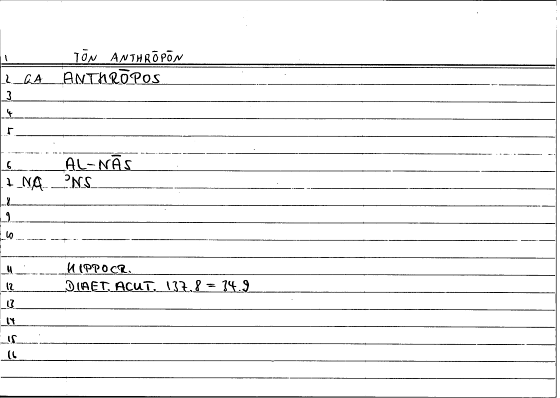 1 TŌN ANTHRŌPŌN
2 GA ANTHRŌPOS
3
4
5
6 AL-NĀS
7 NA ʾNS
8
9
10
11 HIPPOCR.
12 DIAET. ACUT. 137.8 = 34.9
13
14
15
16